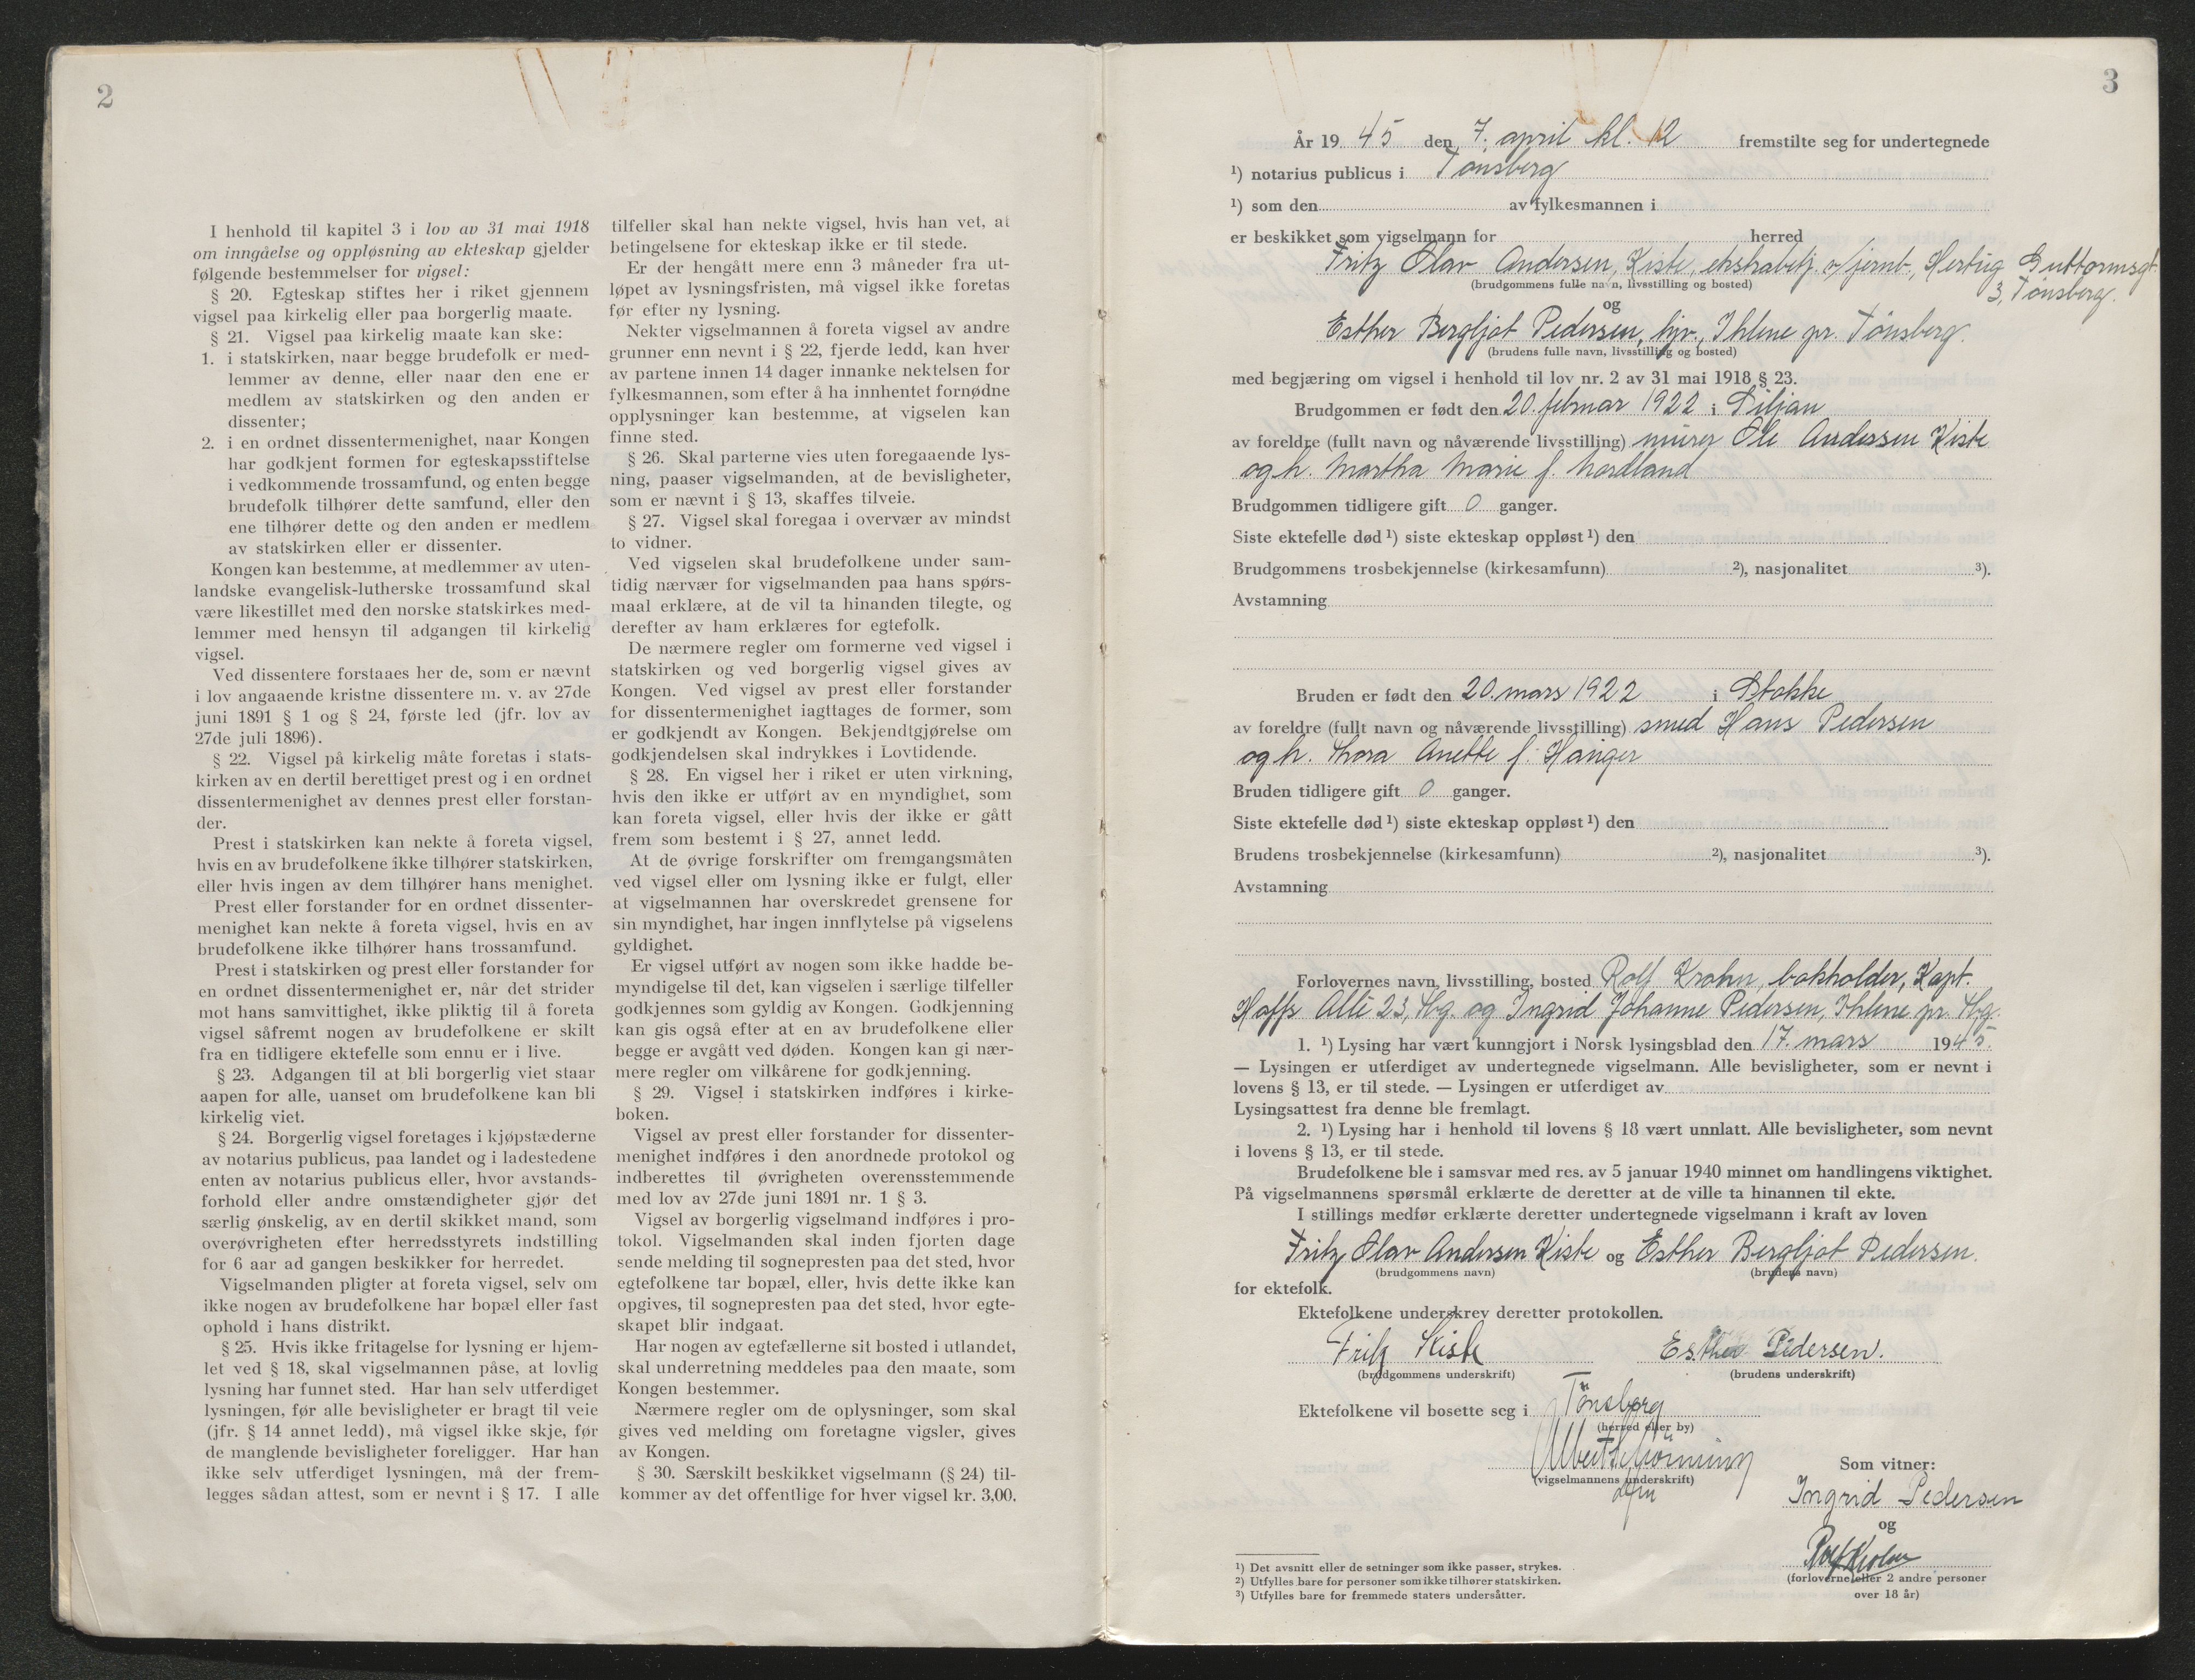 2
I henhold til kapitel 3 i lov av 31 mai 1918
om inngåelse og oppløsning av ekteskap gjelder
følgende bestemmelser for vigsel:
§ 20. Egteskap stiftes her i riket gjennem
vigsel paa kirkelig eller paa borgerlig maate.
§ 21. Vigsel paa kirkelig maate kan ske:
1. i statskirken, naar begge brudefolk er med-
lemmer av denne, eller naar den ene er
medlem av statskirken og den anden er
dissenter;
2. i en ordnet dissentermenighet, naar Kongen
har godkjent formen for egteskapsstiftelse
i vedkommende trossamfund, og enten begge
brudefolk tilhører dette samfund, eller den
ene tilhører dette og den anden er medlem
av statskirken eller er dissenter.
Kongen kan bestemme, at medlemmer av uten-
landske evangelisk-lutherske trossamfund skal
være likestillet med den norske statskirkes med-
lemmer med hensyn til adgangen til kirkelig
vigsel.
Ved dissentere forstaaes her de, som er nævnt
i lov angaaende kristne dissentere m. v. av 27de
juni 1891 § 1 og § 24, første led (jfr. lov av
27de juli 1896).
§ 22. Vigsel på kirkelig måte foretas i stats-
kirken av en dertil berettiget prest og i en ordnet
dissentermenighet av dennes prest eller forstan-
der.
Prest i statskirken kan nekte å foreta vigsel,
hvis en av brudefolkene ikke tilhører statskirken,
eller hvis ingen av dem tilhører hans menighet.
Prest eller forstander for en ordnet dissenter-
menighet kan nekte å foreta vigsel, hvis en av
brudefolkene ikke tilhører hans trossamfund.
Prest i statskirken og prest eller forstander for
en ordnet dissentermenighet er, når det strider
mot hans samvittighet, ikke pliktig til å foreta
vigsel såfremt nogen av brudefolkene er skilt
fra en tidligere ektefelle som ennu er i live.
§ 23. Adgangen til at bli borgerlig viet staar
aapen for alle, uanset om brudefolkene kan bli
kirkelig viet.
§ 24. Borgerlig vigsel foretages i kjøpstæderne
av notarius publicus, paa landet og i ladestedene
enten av notarius publicus eller, hvor avstands-
forhold eller andre omstændigheter gjør det
særlig ønskelig, av en dertil skikket mand, som
overøvrigheten efter herredsstyrets indstilling
for 6 aar ad gangen beskikker for herredet.
Vigselmanden pligter at foreta vigsel, selv om
ikke nogen av brudefolkene har bopæl eller fast
ophold i hans distrikt.
§ 25. Hvis ikke fritagelse for lysning er hjem-
let ved § 18, skal vigselmannen påse, at lovlig
lysning har funnet sted. Har han selv utferdiget
lysningen, før alle bevisligheter er bragt til veie
(jfr. § 14 annet ledd), må vigsel ikke skje, før
de manglende bevisligheter foreligger. Har han
ikke selv utferdiget lysningen, må der frem-
legges sådan attest, som er nevnt i § 17. I alle
tilfeller skal han nekte vigsel, hvis han vet, at
betingelsene for ekteskap ikke er til stede.
Er der hengått mere enn 3 måneder fra ut-
løpet av lysningsfristen, må vigsel ikke foretas
før efter ny lysning.
Nekter vigselmannen å foreta vigsel av andre
grunner enn nevnt i § 22, fjerde ledd, kan hver
av partene innen 14 dager innanke nektelsen for
fylkesmannen, som efter å ha innhentet fornødne
opplysninger kan bestemme, at vigselen kan
finne sted.
§ 26. Skal parterne vies uten foregaaende lys-
ning, paaser vigselmanden, at de bevisligheter,
som er nævnt i § 13, skaffes tilveie.
§ 27. Vigsel skal foregaa i overvær av mindst
to vidner.
Ved vigselen skal brudefolkene under sam-
tidig nærvær for vigselmanden paa hans spørs-
maal erklære, at de vil ta hinanden tilegte, og
derefter av ham erklæres for egtefolk.
De nærmere regler om formerne ved vigsel i
statskirken og ved borgerlig vigsel gives av
Kongen. Ved vigsel av prest eller forstander
for dissentermenighet iagttages de former, som
er godkjendt av Kongen. Bekjendtgjørelse om
godkjendelsen skal indrykkes i Lovtidende.
§ 28. En vigsel her i riket er uten virkning,
hvis den ikke er utført av en myndighet, som
kan foreta vigsel, eller hvis der ikke er gått
frem som bestemt i § 27, annet ledd.
At de øvrige forskrifter om fremgangsmåten
ved vigsel eller om lysning ikke er fulgt, eller
at vigselmannen har overskredet grensene for
sin myndighet, har ingen innflytelse på vigselens
gyldighet.
Er vigsel utført av nogen som ikke hadde be-
myndigelse til det, kan vigselen i særlige tilfeller
godkjennes som gyldig av Kongen. Godkjenning
kan gis også efter at en av brudefolkene eller
begge er avgått ved døden. Kongen kan gi nær-
mere regler om vilkårene for godkjenning.
§ 29. Vigsel i statskirken indføres i kirke-
boken.
Vigsel av prest eller forstander for dissenter-
menighet indføres i den anordnede protokol og
indberettes til øvrigheten overensstemmende
med lov av 27de juni 1891 nr. 1 § 3.
Vigsel av borgerlig vigselmand indføres i pro-
tokol. Vigselmanden skal inden fjorten dage
sende melding til sognepresten paa det sted, hvor
egtefolkene tar bopæl, eller, hvis dette ikke kan
opgives, til sognepresten paa det sted, hvor egte-
skapet blir indgaat.
Har nogen av egtefællerne sit bosted i utlandet,
skal underretning meddeles paa den maate, som
Kongen bestemmer.
Nærmere regler om de oplysninger, som skal
gives ved melding om foretagne vigsler, gives
av Kongen.
§ 30. Særskilt beskikket vigselmann (§ 24) til-
kommer av det offentlige for hver vigsel kr. 3,00.
3
År 19 45 den 7. april kl. 12 fremstilte seg for undertegnede
¹) notarius publicus i Tønsberg
¹) som den av fylkesmannen i
er beskikket som vigselmann for herred
Fritz Olav Andersen Kiste, ekstrabetj. v/jernb., Hertug Guttormsgt.
3, Tønsberg.
(brudgommens fulle navn, livsstilling og bosted)
og
Esther Bergljot Pedersen, hjv., Ihlene pr. Tønsberg.
(brudens fulle navn, livsstilling og bosted)
med begjæring om vigsel i henhold til lov nr. 2 av 31 mai 1918 § 23.
Brudgommen er født den 20. februar 1922 i Siljan
av foreldre (fullt navn og nåværende livsstilling) murer Ole Anderssen Kiste
og h. Martha Marie f. Nordland
Brudgommen tidligere gift 0 ganger.
Siste ektefelle død ¹) siste ekteskap oppløst ¹) den
Brudgommens trosbekjennelse (kirkesamfunn) ²), nasjonalitet ³).
Avstamning
Bruden er født den 20. mars 1922 i Stokke
av foreldre (fullt navn og nåværende livsstilling) smed Hans Pedersen
og h. Thora Anette f. Hanger
Bruden tidligere gift 0 ganger.
Siste ektefelle død ¹) siste ekteskap oppløst ¹) den
Brudens trosbekjennelse (kirkesamfunn) ²), nasjonalitet ³).
Avstamning
Forlovernes navn, livsstilling, bosted Rolf Krohn, bokholder, Kapt.
Hoffs Allé 23, Tbg. og Ingrid Johanne Pedersen, Ihlene pr. Tbg.
1. ¹) Lysing har vært kunngjort i Norsk lysingsblad den 17. mars 1945.
— Lysingen er utferdiget av undertegnede vigselmann. Alle bevisligheter, som er nevnt i
lovens § 13, er til stede. — Lysingen er utferdiget av
Lysingsattest fra denne ble fremlagt.
2. ¹) Lysing har i henhold til lovens § 18 vært unnlatt. Alle bevisligheter, som nevnt
i lovens § 13, er til stede.
Brudefolkene ble i samsvar med res. av 5 januar 1940 minnet om handlingens viktighet.
På vigselmannens spørsmål erklærte de deretter at de ville ta hinannen til ekte.
I stillings medfør erklærte deretter undertegnede vigselmann i kraft av loven
Fritz Olav Andersen Kiste og Esther Bergljot Pedersen.
(brudgommens navn) (brudens navn)
for ektefolk.
Ektefolkene underskrev deretter protokollen.
Fritz Kiste Esther Pedersen.
(brudgommens underskrift) (brudens underskrift)
Ektefolkene vil bosette seg i Tönsberg
(herred eller by)
(vigselmannens underskrift)
Som vitner:
Ingrid Pedersen
og
Rolf Krohn
(forloverne eller 2 andre personer
over 18 år)
¹) Det avsnitt eller de setninger som ikke passer, strykes.
²) Utfylles bare for personer som ikke tilhører statskirken.
³) Utfylles bare for fremmede staters undersåtter.